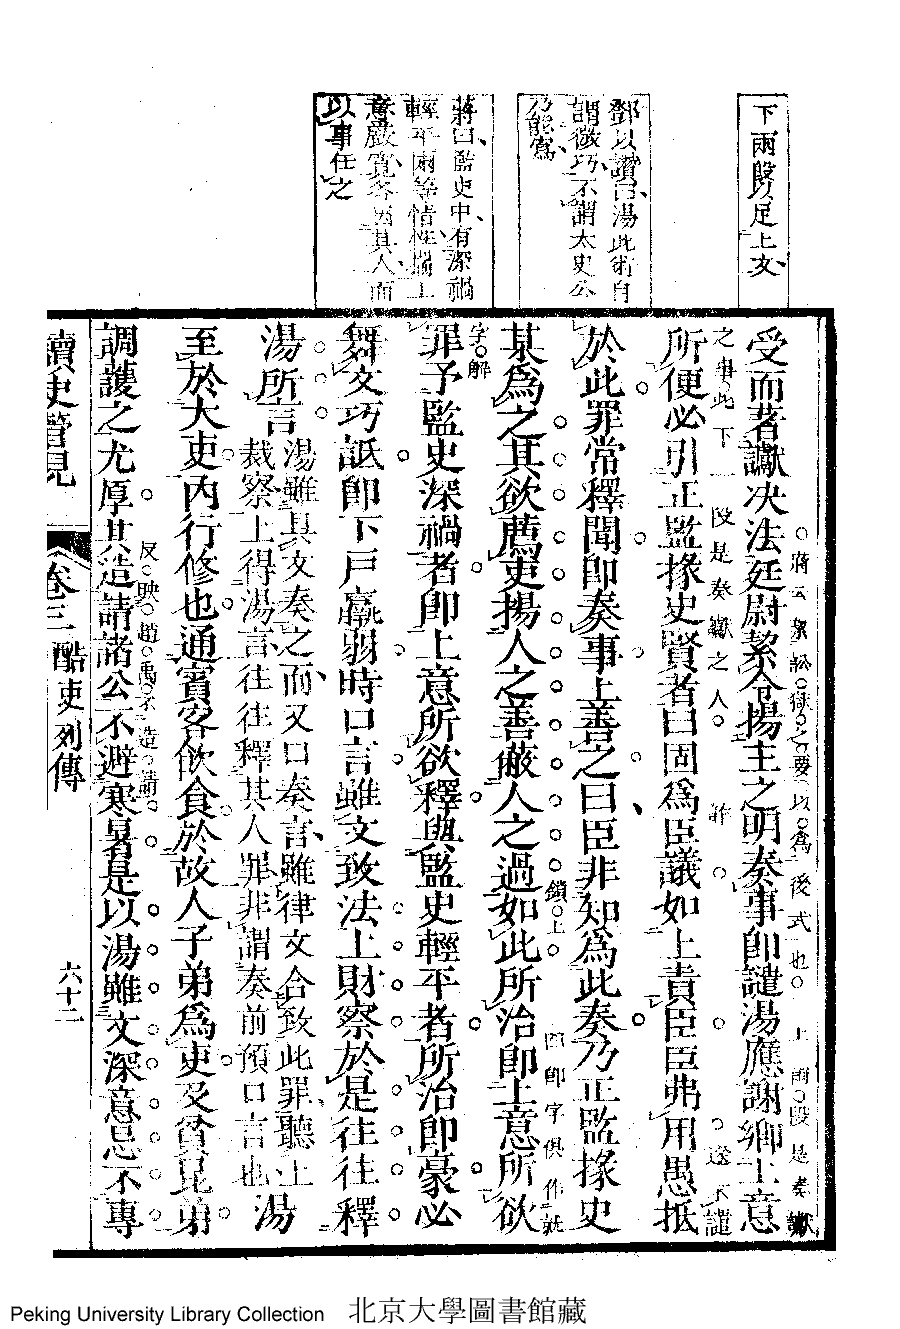 下兩段足上文
鄧以讚曰湯此術自
謂微巧不謂太史公
乃能寫
蔣曰酷吏中有深禍
輕平兩等情性揣上
意嚴寬各因其人而
以事任之
受而著讞决法廷尉絜令揚主之明奏事卽譴湯應謝鄉上意
蔣云絜訟獄之要以爲後式也
上兩段是奏讞
之事此下一段是奏讞之人
所便必引正監掾史賢者曰固爲臣議如上責臣臣弗用愚抵
於此罪常釋聞卽奏事上善之曰臣非知爲此奏乃正監掾史
某爲之其欲薦吏揚人之善蔽人之過如此所治卽上意所欲
鎖上
四卽字俱作就
字解
罪予監史深禍者卽上意所欲釋與監史輕平者所治卽豪必
舞文巧詆卽下戶羸弱時口言雖文致法上財察於是往往釋
湯所言
湯雖具文奏之而又口奏言雖律文合致此罪聽上
裁察上得湯言往往釋其人罪非謂奏前預口言也
湯
至於大吏內行修也通賓客飲食於故人子弟爲吏及貧昆弟
反映趙禹不造請
調護之尤厚其造請諸公不避寒暑是以湯雖文深意忌不專
讀史管見
卷三
酷吏列傳
六十二
Peking University Library Collection 北京大學圖書館藏